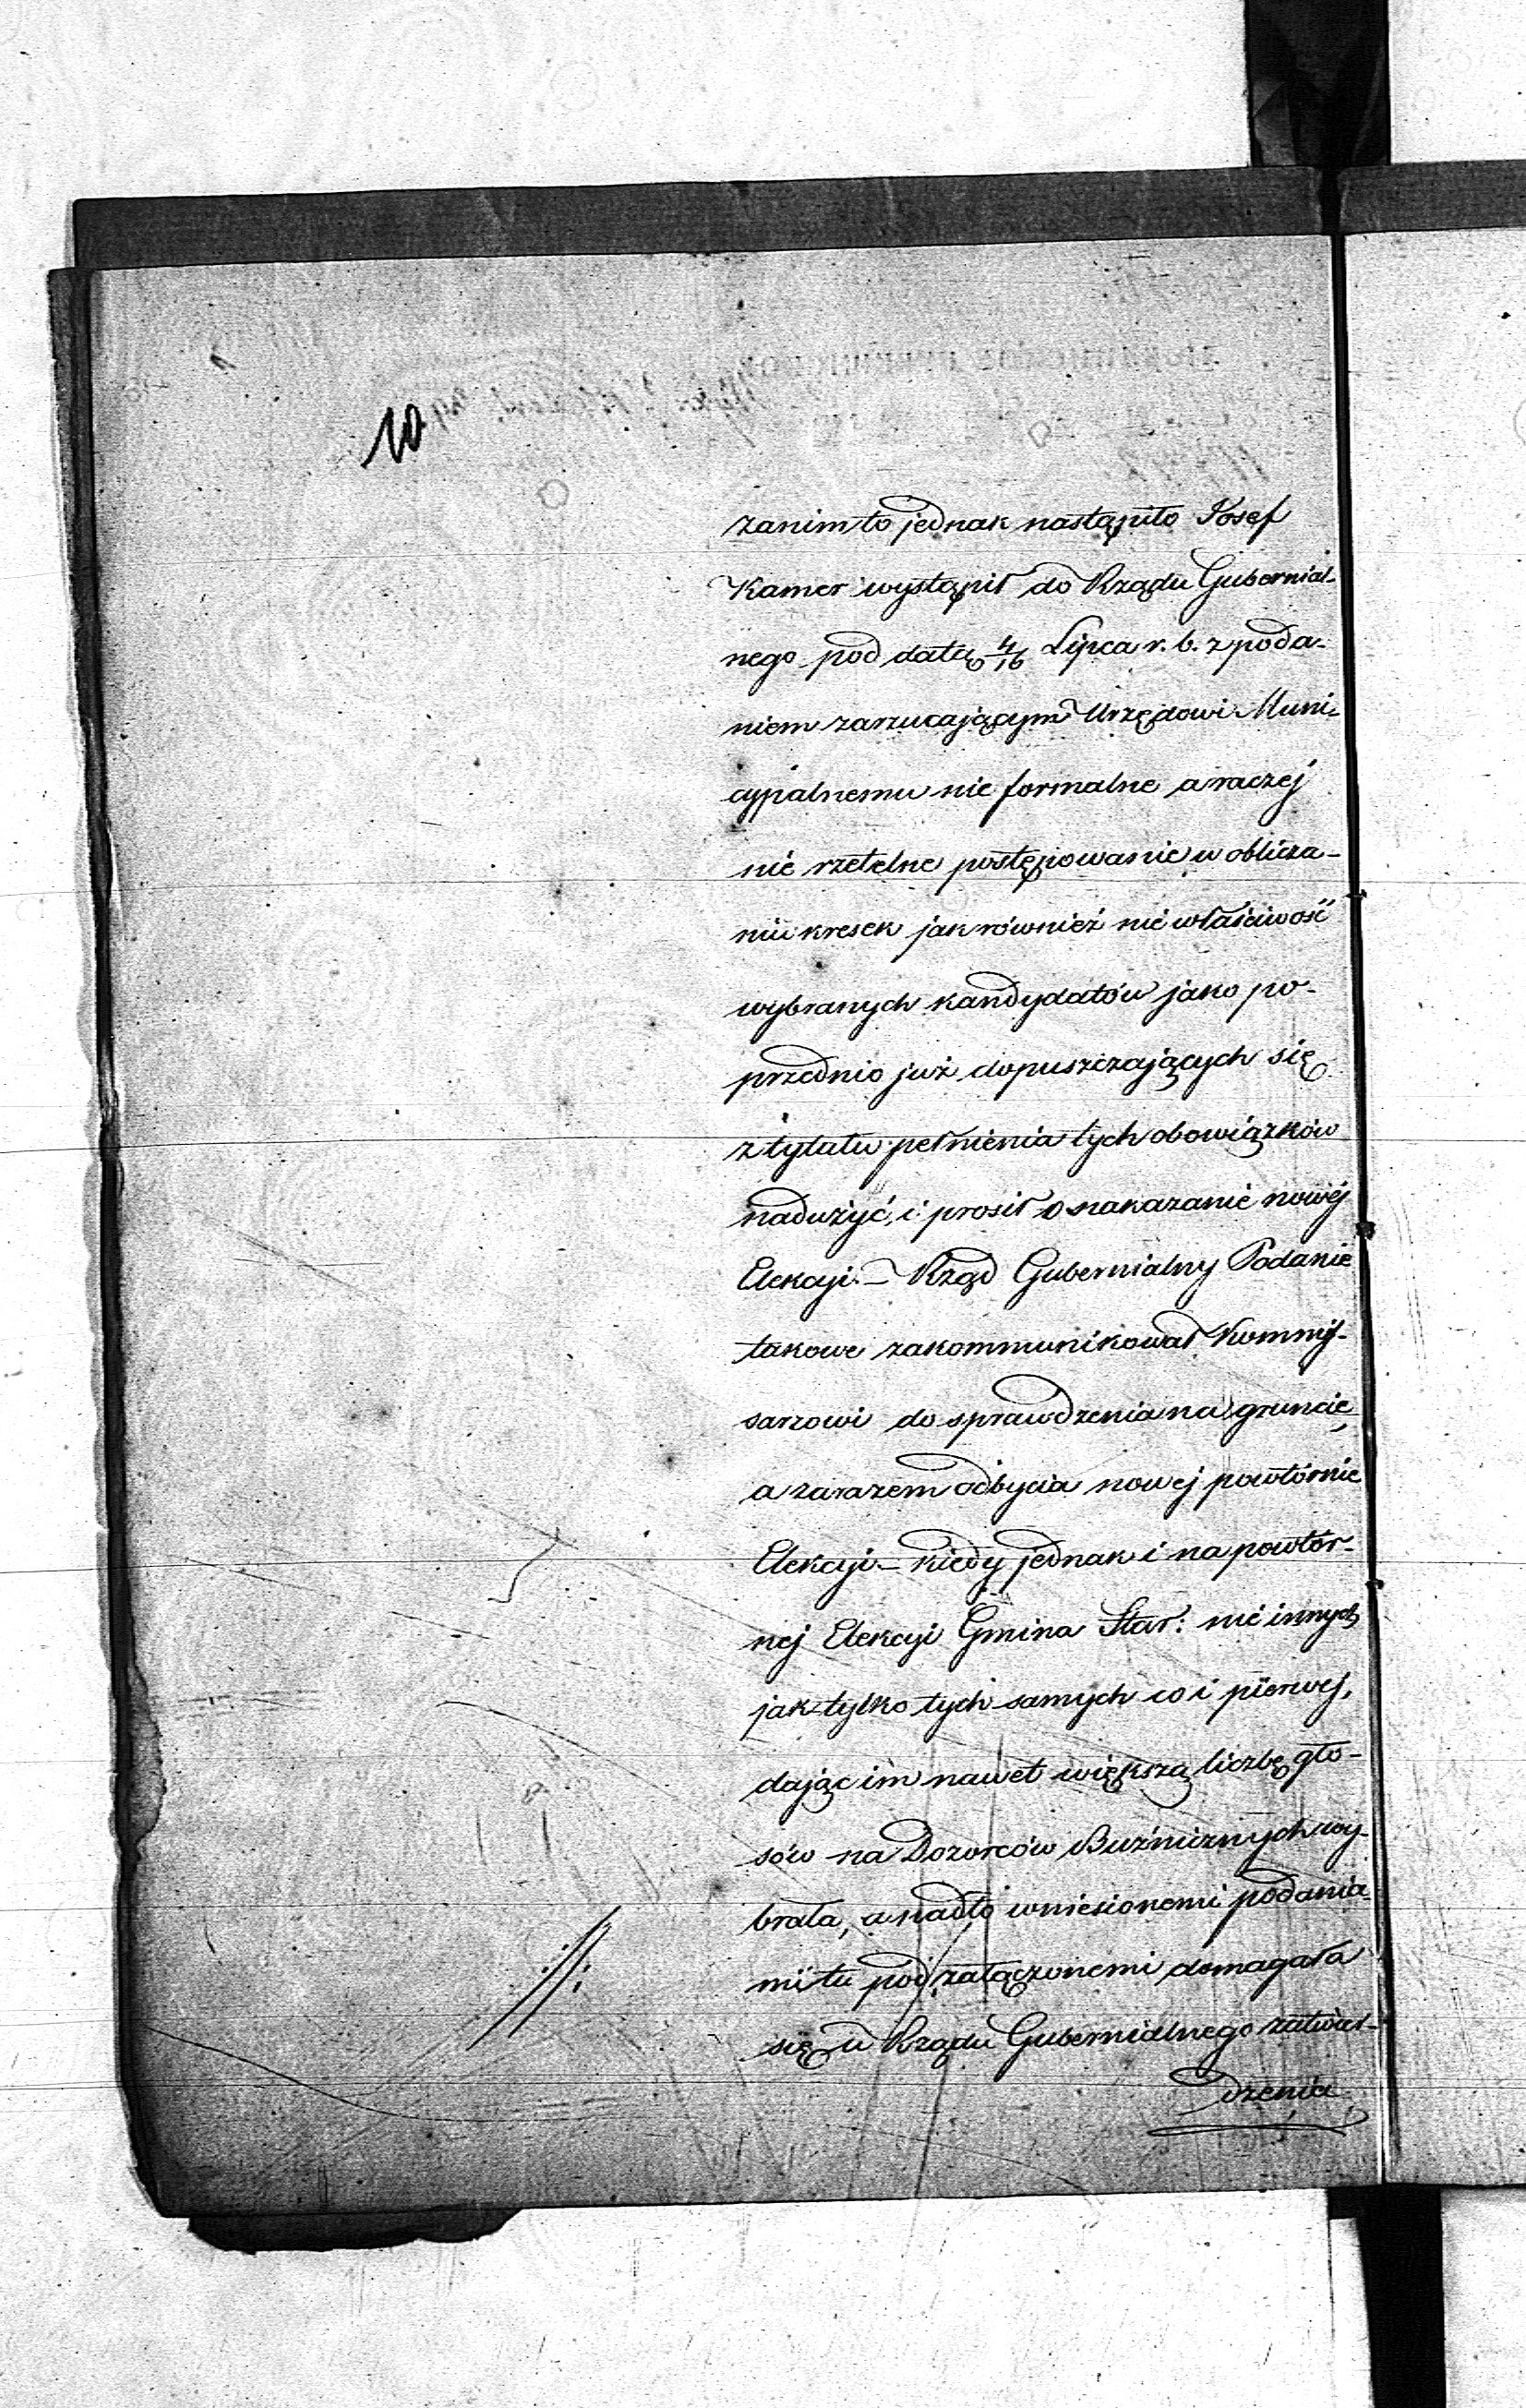 10
zanim to jednak nastąpiło Josef
Kamer wystąpił do Rządu Gubernial-
nego pod datą 4/16 Lipca r. b. z poda-
niem zarzucającym Urzędowi Muni-
cypalnemu nie formalne a raczej
nie rzetelne postępowanie w oblicza-
niu kresek jak również nie właściwość
wybranych kandydatów jako po-
przednio już dopuszczających się
z tytułu pełnienia tych obowiązków
nadużyć, i prosił o nakazanie nowéj
Elekcyi. – Rząd Gubernialny Podanie
takowe zakommunikował Kommis-
sarzowi do sprawdzenia na gruncie,
a zarazem odbycia nowej powtórnie
Elekcyi – kiedy jednak i na powtór-
nej Elekcyi Gmina Star: nie innych
jak tylko tych samych co i pierwej,
dając im nawet większą liczbę gło-
sów na Dozorców Bużnicznych wy-
brała, a nadto wniesionemi podania
mi tu pod załączonemi domagała
się u Rządu Gubernialnego zatwier-
dzenia